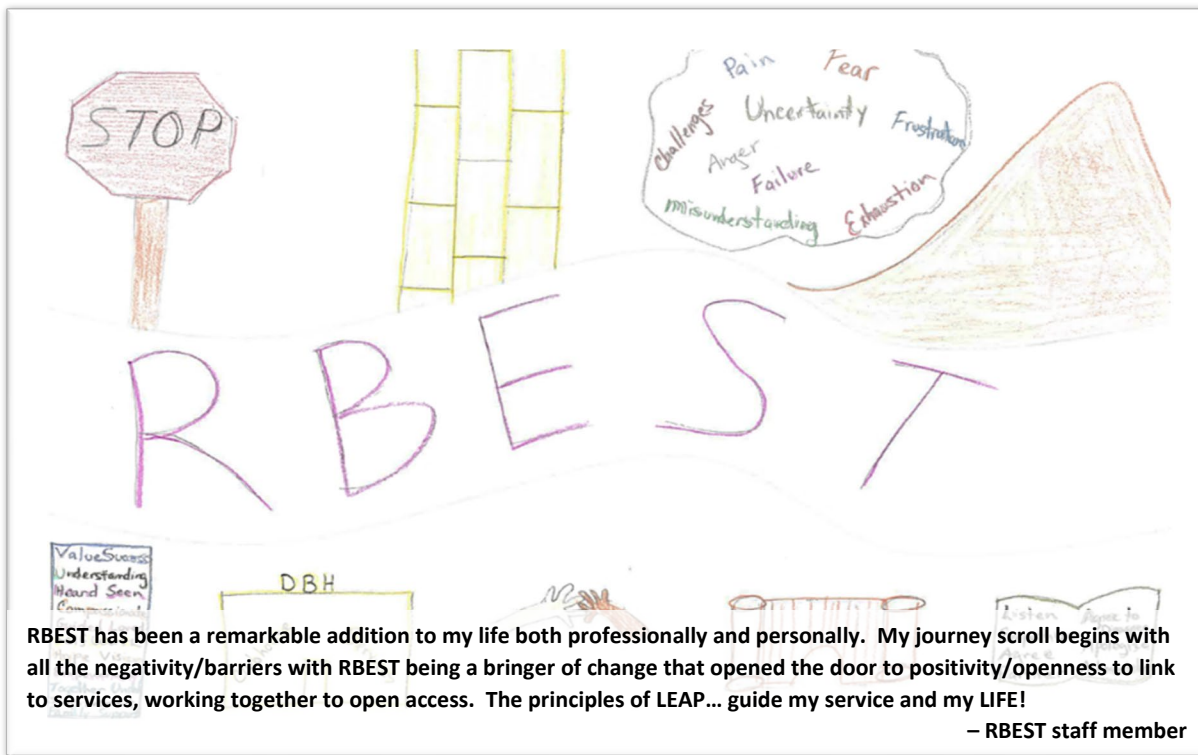 STOP
Pain Fear
Challenges Uncertainty Frustration
Anger
Failure
misunderstanding Exhaustion
RBEST
Value Success
Understanding
Heard Seen
DBH
Listen Agree to
Agree Apologise
RBEST has been a remarkable addition to my life both professionally and personally. My journey scroll begins with
all the negativity/barriers with RBEST being a bringer of change that opened the door to positivity/openness to link
to services, working together to open access. The principles of LEAP... guide my service and my LIFE!
– RBEST staff member